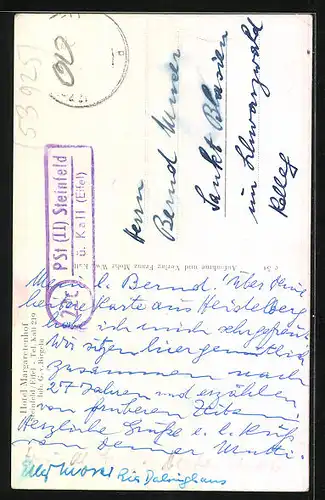 (539251)
Herrn
Bernd Moser
Sankt Blasien
im Schwarzwald
Kolleg
PSt (II) Steinfeld
ü. Kall (Eifel)
Hotel Margaretenhof
Steinfeld/Eifel - Tel. Kall 219
Inh. G. v. Biegeln
Aufnahme und Verlag Franz Mohr
Mein l. Bernd. Über Deine
liebe Karte aus Heidelberg
habe ich mich sehr gefreut.
Wir sitzen hier gemütlich
zusammen nach
27 Jahren und erzählen
von früheren Zeiten.
Herzliche Grüße e. l. Kuß
von Deiner Mutti.
Elly Moser Ria